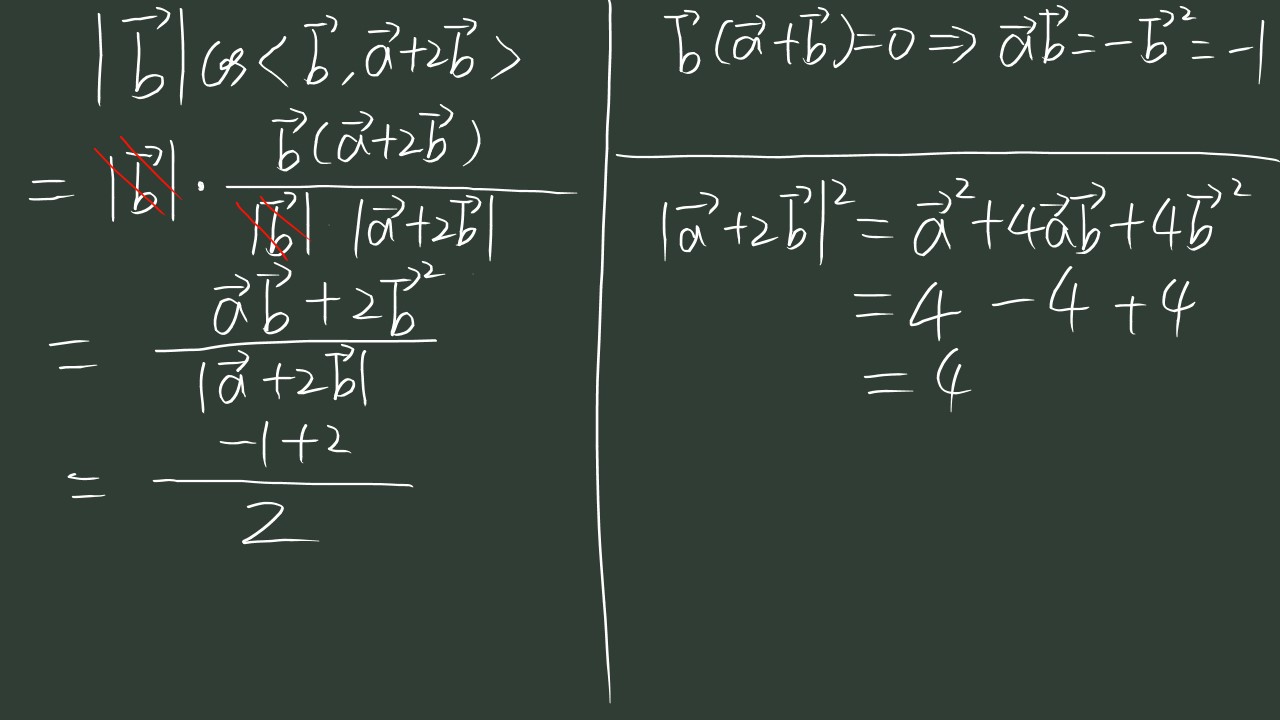 |\vec{b}| cos< \vec{b}, \vec{a}+2\vec{b} >
= |\vec{b}| · \frac{\vec{b}(\vec{a}+2\vec{b})}{|\vec{b}| |\vec{a}+2\vec{b}|}
= \frac{\vec{a}\vec{b}+2\vec{b}^2}{|\vec{a}+2\vec{b}|}
= \frac{-1+2}{2}
\vec{b}(\vec{a}+\vec{b})=0 ⇒ \vec{a}\vec{b}=-\vec{b}^2=-1
|\vec{a}+2\vec{b}|^2 = \vec{a}^2+4\vec{a}\vec{b}+4\vec{b}^2
= 4 - 4 + 4
= 4